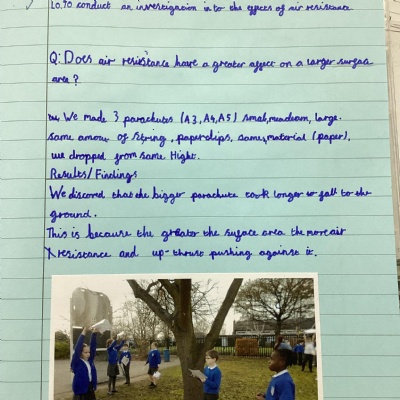 Lo. To conduct an investigation into the effects of air resistance
Q: Does air resistance have a greater affect on a larger surface
area?
We made 3 parachutes (A3, A4, A5) small, meadeam, large.
same amour of string, paperclips, same, material (paper),
we dropped from same Hight.
Results/Findings
We discored that the bigger parachute took longer to fall to the
ground.
This is because the greater the surface area the more air
resistance and up-thrust pushing against it.